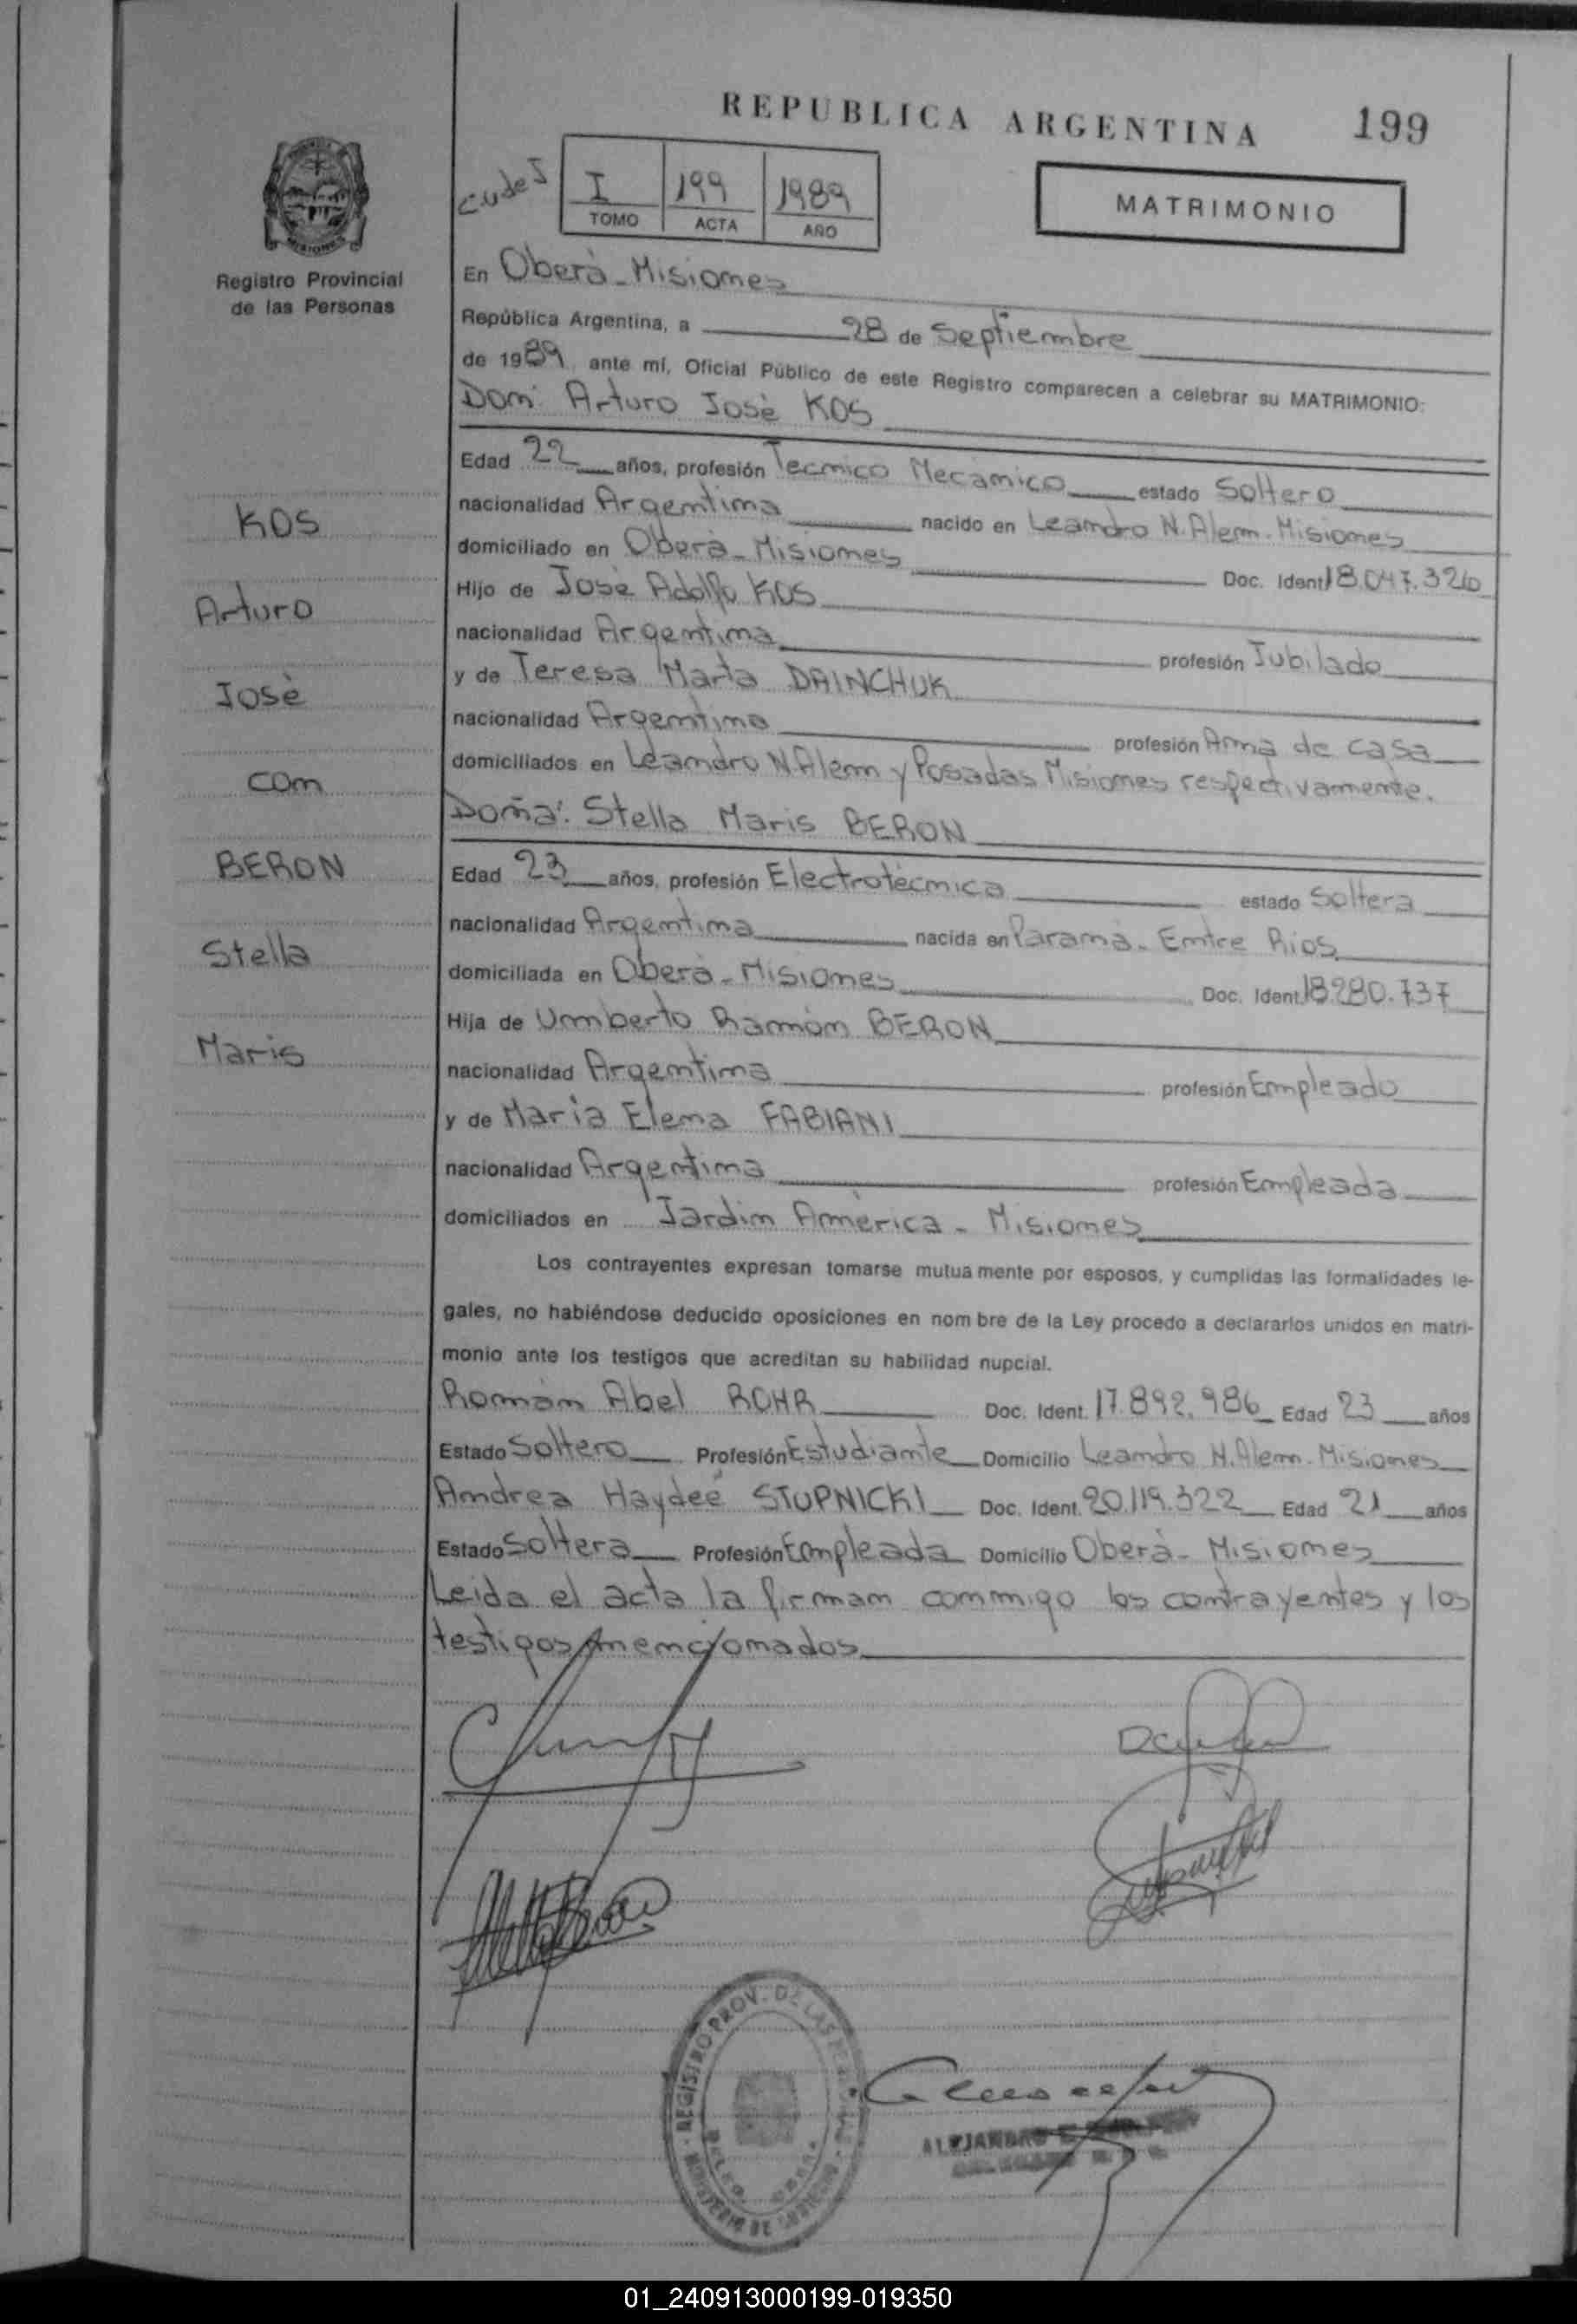 REPUBLICA ARGENTINA 199
I 199 1989
TOMO ACTA AÑO
MATRIMONIO
MISIONES
Registro Provincial
de las Personas
En Oberá - Misiones
República Argentina, a 28 de Septiembre
de 1989 ante mí, Oficial Público de este Registro comparecen a celebrar su MATRIMONIO:
Don: Arturo José KOS
Edad 22 años, profesión Tecnico Mecánico estado Soltero
nacionalidad Argentina nacido en Leandro N. Alem - Misiones
domiciliado en Oberá - Misiones Doc. Ident. 18.047.320
Hijo de José Adolfo KOS
nacionalidad Argentina profesión Jubilado
y de Teresa Marta DAINCHUK
nacionalidad Argentina profesión Ama de casa
domiciliados en Leandro N. Alem y Posadas Misiones respectivamente.
Doña: Stella Maris BERON
Edad 23 años, profesión Electrotécnica estado Soltera
nacionalidad Argentina nacida en Paraná - Entre Rios
domiciliada en Oberá - Misiones Doc. Ident. 18.280.737
Hija de Umberto Ramón BERON
nacionalidad Argentina profesión Empleado
y de Maria Elena FABIANI
nacionalidad Argentina profesión Empleada
domiciliados en Jardin América - Misiones
Los contrayentes expresan tomarse mutua mente por esposos, y cumplidas las formalidades le-
gales, no habiéndose deducido oposiciones en nom bre de la Ley procedo a declararlos unidos en matri-
monio ante los testigos que acreditan su habilidad nupcial.
Román Abel ROHR Doc. Ident. 17.892.986 Edad 23 años
Estado Soltero Profesión Estudiante Domicilio Leandro N. Alem - Misiones
Andrea Haydeé STUPNICKI Doc. Ident. 20.119.322 Edad 21 años
Estado Soltera Profesión Empleada Domicilio Oberá - Misiones
Leida el acta la firman conmigo los contrayentes y los
testigos mencionados
KOS
Arturo
José
con
BERON
Stella
Maris
REGISTRO PROV. DE LAS
ALEJANDRO
01_240913000199-019350